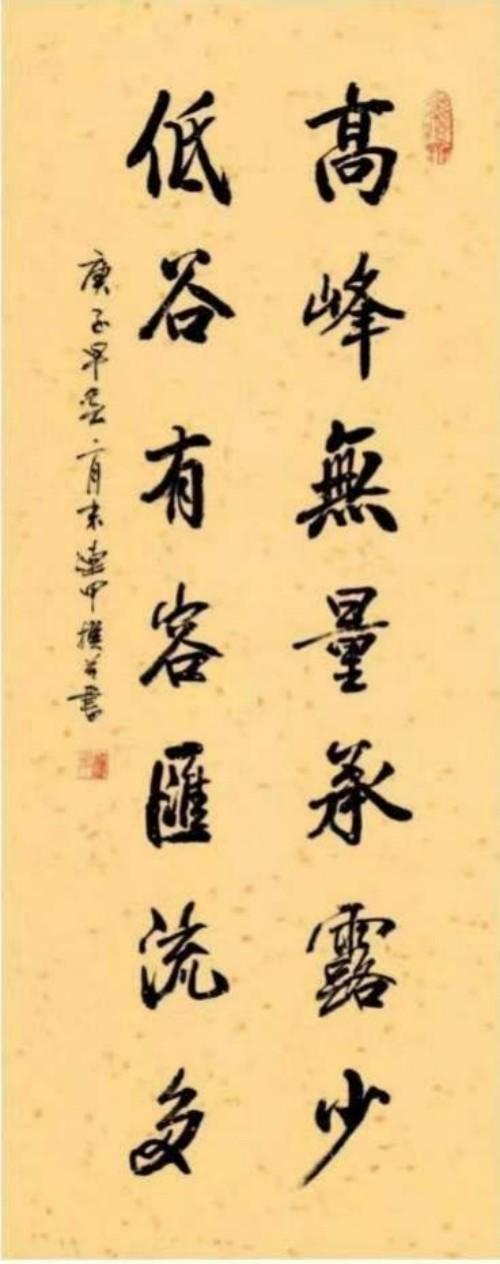 高峰無量承露少
低谷有容匯流多
庚子早春二月末連甲撰并書